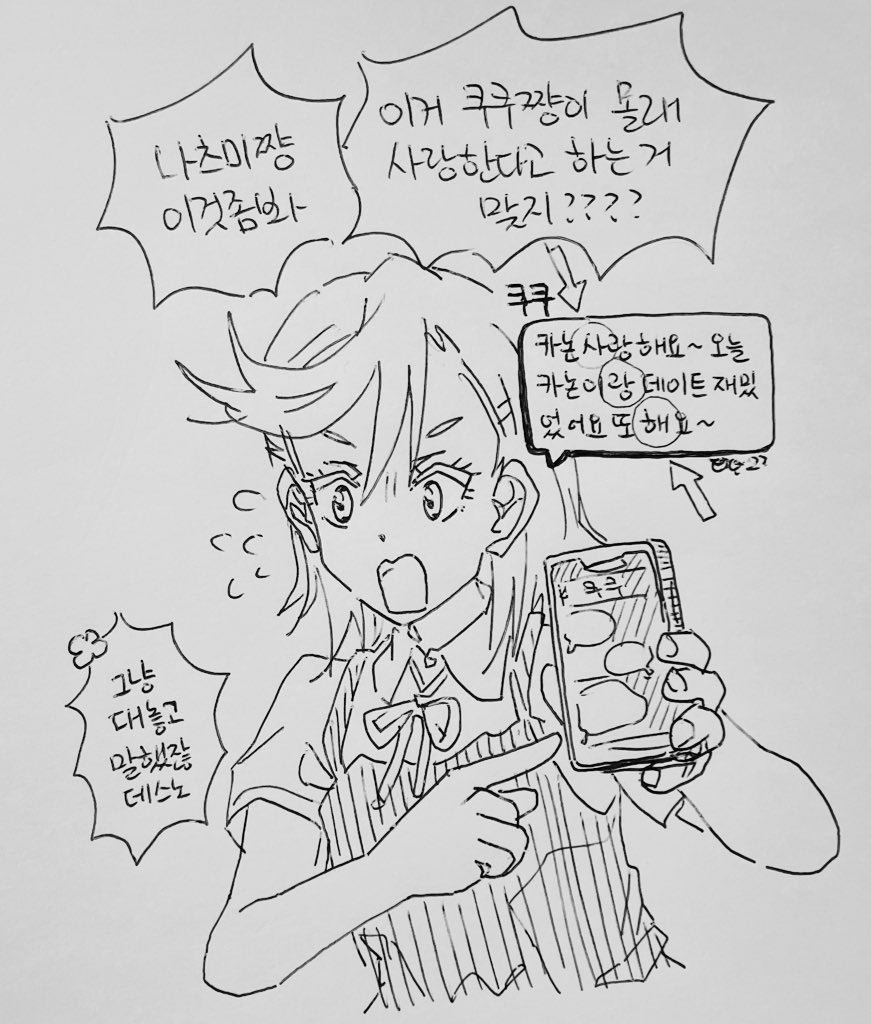 나츠미쨩
이것좀봐
이거 쿠쿠쨩이 몰래
사랑한다고 하는 거
맞지????
쿠쿠
카논 사랑해요~ 오늘
카논이랑 데이트 재밌
었어요 또 해요~
쿠쿠
그냥
대놓고
말했잖
데스노